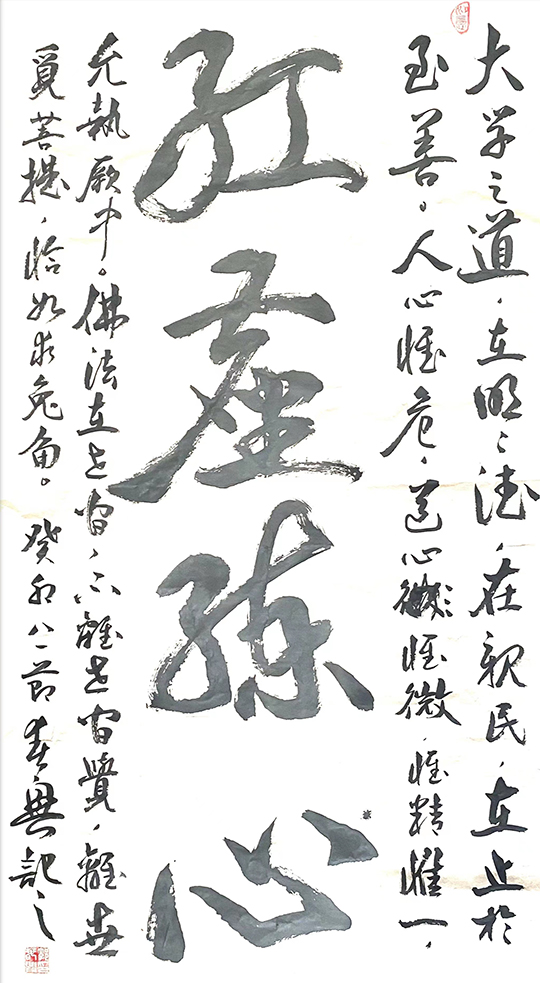 大学之道，在明々德，在親民，在止於
至善。人心惟危，道心惟微，惟精惟一，
紅塵練心
允執厥中。佛法在世间，不離世间覺，離世
覓菩提，恰如求兔角。癸卯八一節春興記之